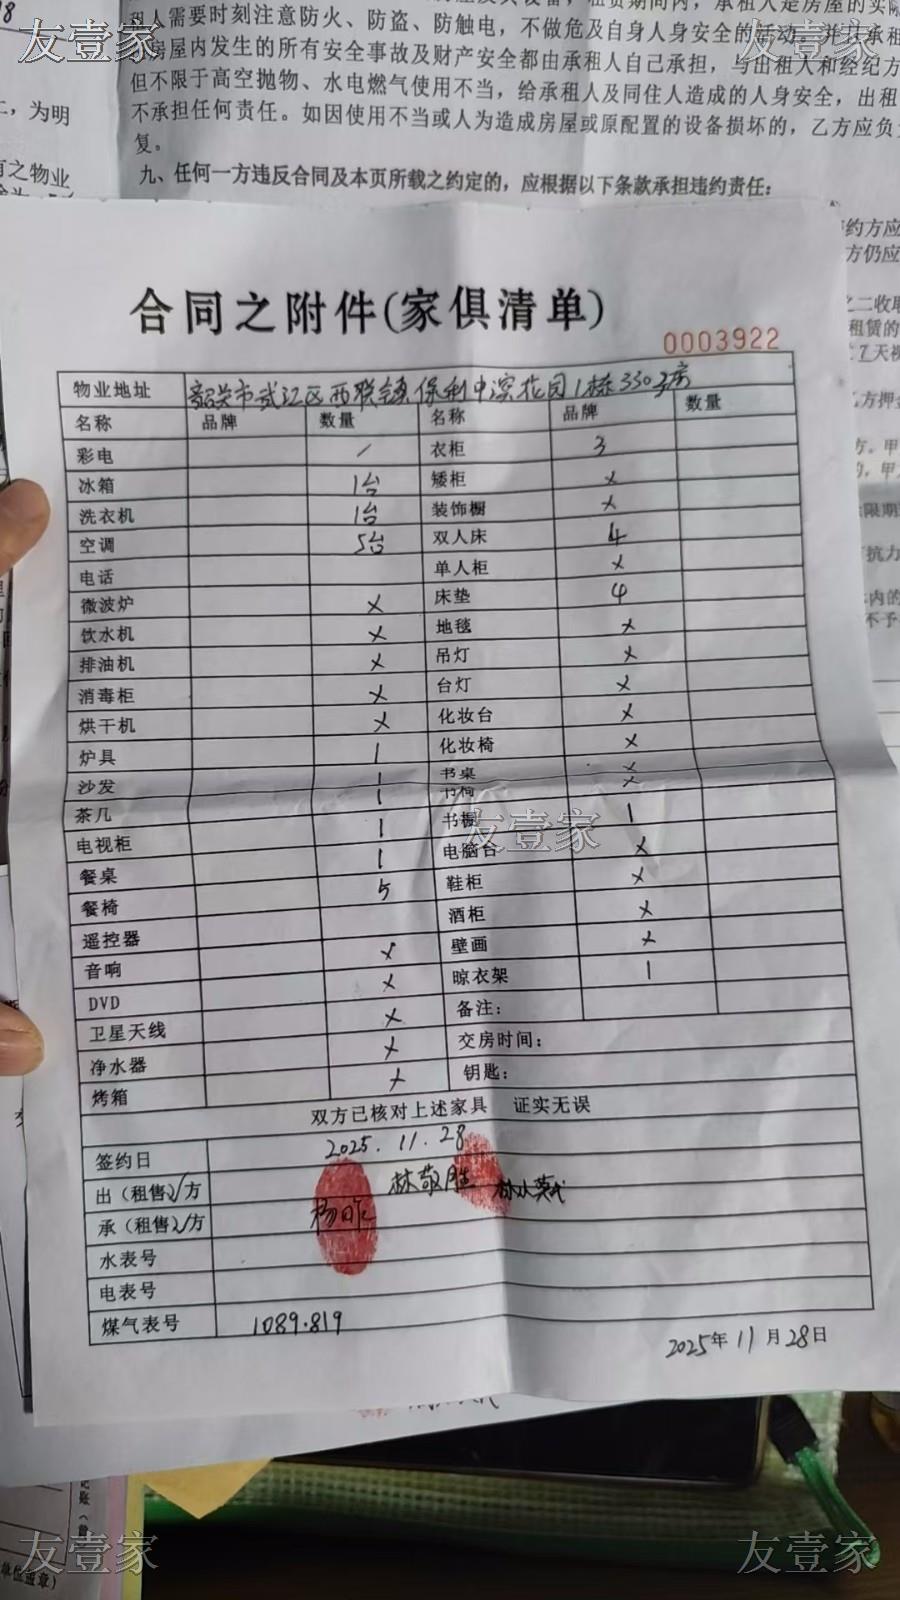 友壹家
友壹家
租人需要时刻注意防火、防盗、防触电，不做危及自身人身安全的活动。并
房屋内发生的所有安全事故及财产安全都由承租人自己承担，与出租人和经纪方
但不限于高空抛物、水电燃气使用不当，给承租人及同住人造成的人身安全，出租
不承担任何责任。如因使用不当或人为造成房屋或原配置的设备损坏的，乙方应负
复。
九、任何一方违反合同及本页所载之约定的，应根据以下条款承担违约责任：
，为明
有之物业
约方应
方仍应
之二收取
租赁的
7天视
乙方押金
合同之附件(家俱清单)
0003922
物业地址 韶关市武江区西联镇保利中滨花园1栋3303房
名称 品牌 数量 名称 品牌 数量
彩电 / 衣柜 3
冰箱 1台 矮柜 ×
洗衣机 1台 装饰橱 ×
空调 5台 双人床 4
电话 单人柜 ×
微波炉 × 床垫 4
饮水机 × 地毯 ×
排油机 × 吊灯 ×
消毒柜 × 台灯 ×
烘干机 × 化妆台 ×
炉具 1 化妆椅 ×
沙发 1 书桌 ×
茶几 1 书椅 ×
电视柜 1 书橱 1
餐桌 1 电脑台 ×
餐椅 5 鞋柜 ×
遥控器 酒柜 ×
音响 × 壁画 ×
DVD × 晾衣架 1
卫星天线 × 备注：
净水器 × 交房时间：
烤箱 × 钥匙：
友壹家
双方已核对上述家具 证实无误
签约日 2025.11.28
出（租售）√方 林敬胜
承（租售）√方 杨昨
水表号
电表号
煤气表号 1089.819
2025年11月28日
友壹家
友壹家